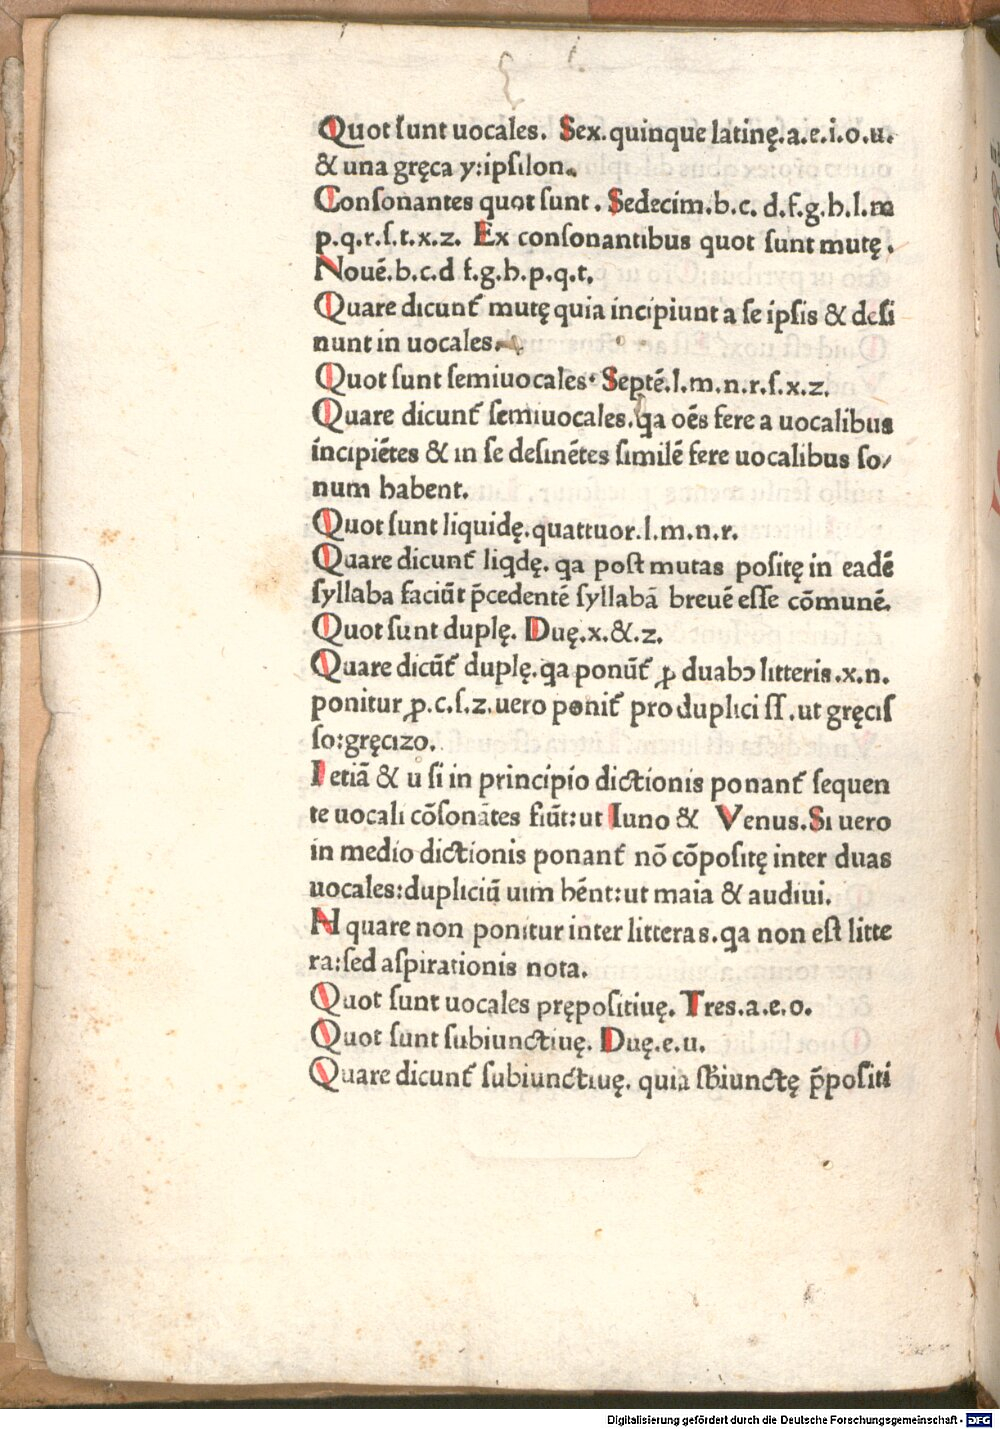 Quot ſunt uocales. Sex. quinque latinę.a.e.i.o.u.
& una gręca y:ipſilon.
Conſonantes quot ſunt. Sedecim.b.c. d.f.g.h.l.m
p.q.r.ſ.t.x.z. Ex conſonantibus quot ſunt mutę.
Nouē.b.c.d f.g.h.p.q.t.
Quare dicunt᷑ mutę quia incipiunt a ſe ipſis & deſi
nunt in uocales.
Quot ſunt ſemiuocales· Septē.l.m.n.r.ſ.x.z.
Quare dicunt᷑ ſemiuocales.q̇a oēs fere a uocalibus
incipiētes & in ſe deſinētes ſimilē fere uocalibus ſo/
num habent.
Quot ſunt liquidę.quattuor.l.m.n.r.
Quare dicunt᷑ liq̇dę. q̇a poſt mutas poſitę in eadē
ſyllaba faciūt p̄cedentē ſyllabā breuē eſſe cōmunē.
Quot ſunt duplę. Duę.x.&.z.
Quare dicūt᷑ duplę.q̇a ponūt᷑ ꝓ duabꝰ litteris.x.n.
ponitur ꝓ.c.ſ.z.uero ponit᷑ pro duplici ſſ.ut gręciſ
ſo:gręcizo.
I etiā & u ſi in principio dictionis ponant᷑ ſequen
te uocali cōſonātes fiūt:ut Iuno & Venus.Si uero
in medio dictionis ponant᷑ nō cōpoſitę inter duas
uocales:dupliciū uim hēnt:ut maia & audiui.
H quare non ponitur inter litteras.q̇a non eſt litte
ra:ſed aſpirationis nota.
Quot ſunt uocales prępoſitiuę. Tres.a.e.o.
Quot ſunt ſubiunctiuę. Duę.e.u.
Quare dicunt᷑ ſubiunctiuę. quia ſb̄iunctę p̄poſiti
Digitalisierung gefördert durch die Deutsche Forschungsgemeinschaft - DFG